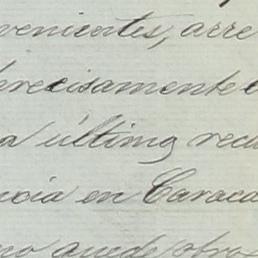 venientes, arre
precisamente e
a última recu
ncia en Caraca
no quede otro